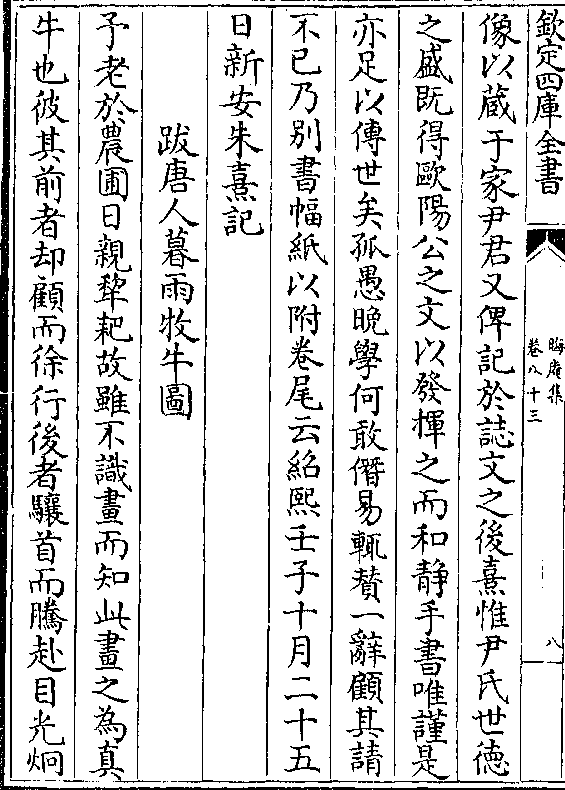 欽定四庫全書
晦庵集
卷八十三
八
像以蔵于家尹君又俾記於誌文之後熹惟尹氏世徳
之盛既得歐陽公之文以發揮之而和靜手書唯謹是
亦足以傳世矣孤愚晚學何敢僭易輒賛一辭顧其請
不已乃别書幅紙以附卷尾云紹熙壬子十月二十五
日新安朱熹記
跋唐人暮雨牧牛圖
予老於農圃日親犂耙故雖不識畫而知此畫之為真
牛也彼其前者却顧而徐行後者驤首而騰赴目光炯